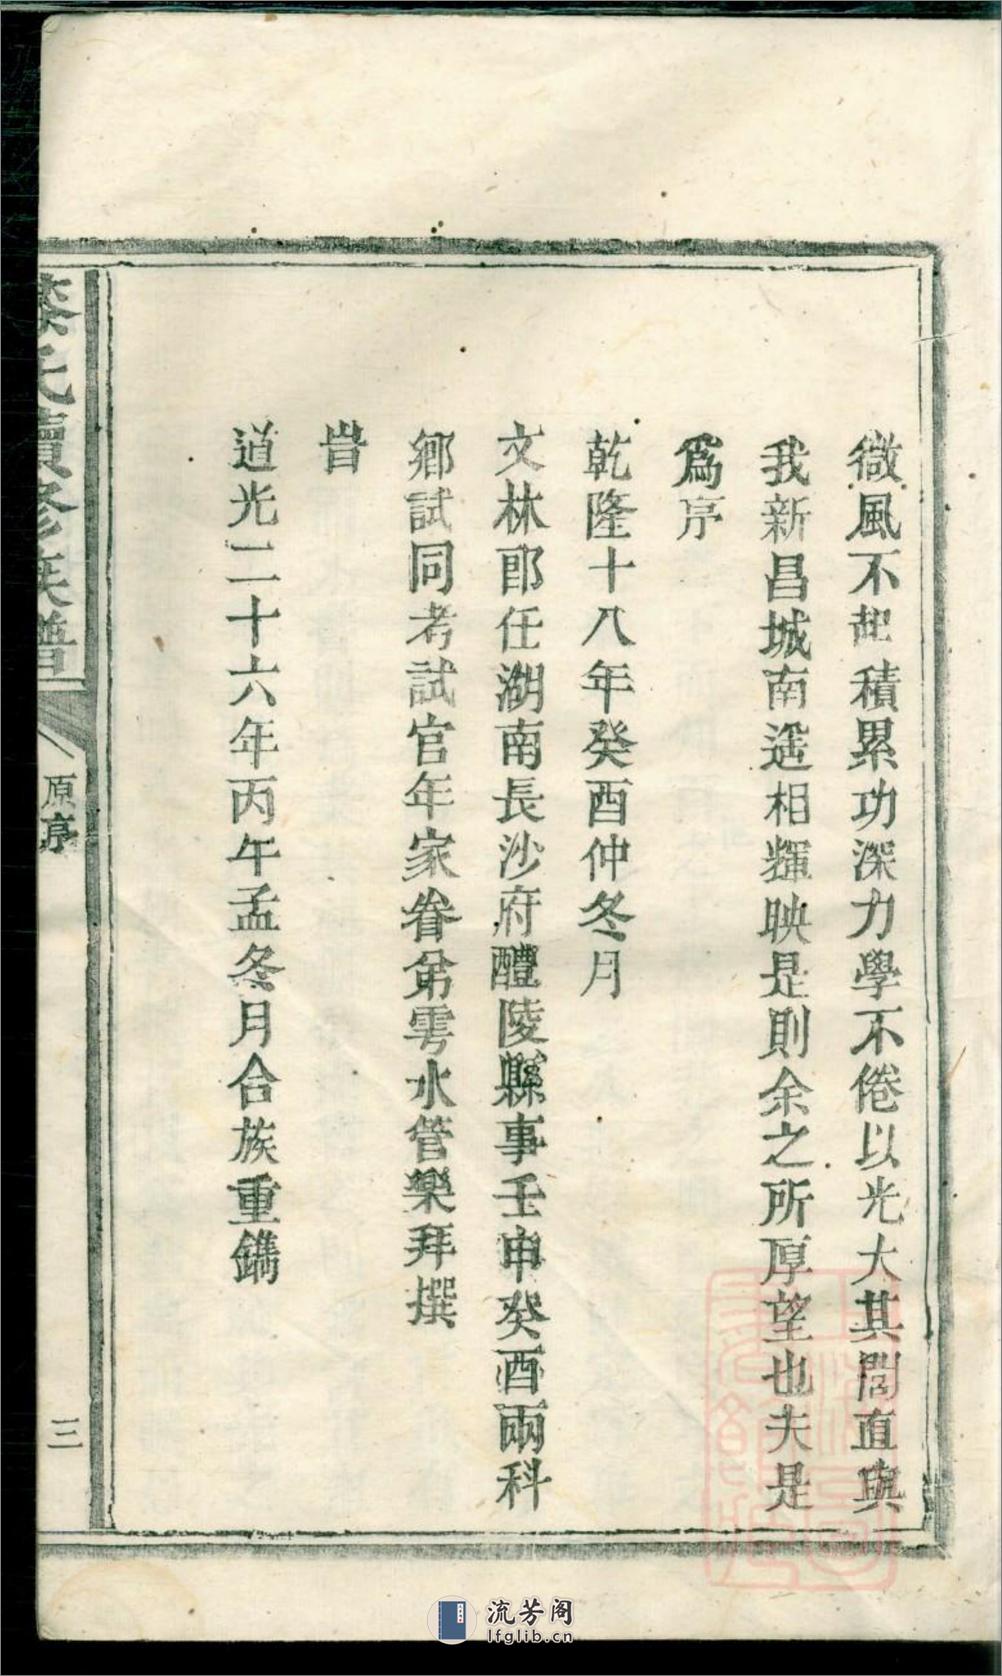 微風不起積累功深力學不倦以光大其閭直與
我新昌城南遥相輝映是則余之所厚望也夫是
為序
乾隆十八年癸酉仲冬月
文林郎任湖南長沙府醴陵縣事壬申癸酉兩科
鄉試同考試官年家眷弟雩水管樂拜撰
旹
道光二十六年丙午孟冬月合族重鐫
氏續修族譜
原序
三
流芳阁
lfglib.cn